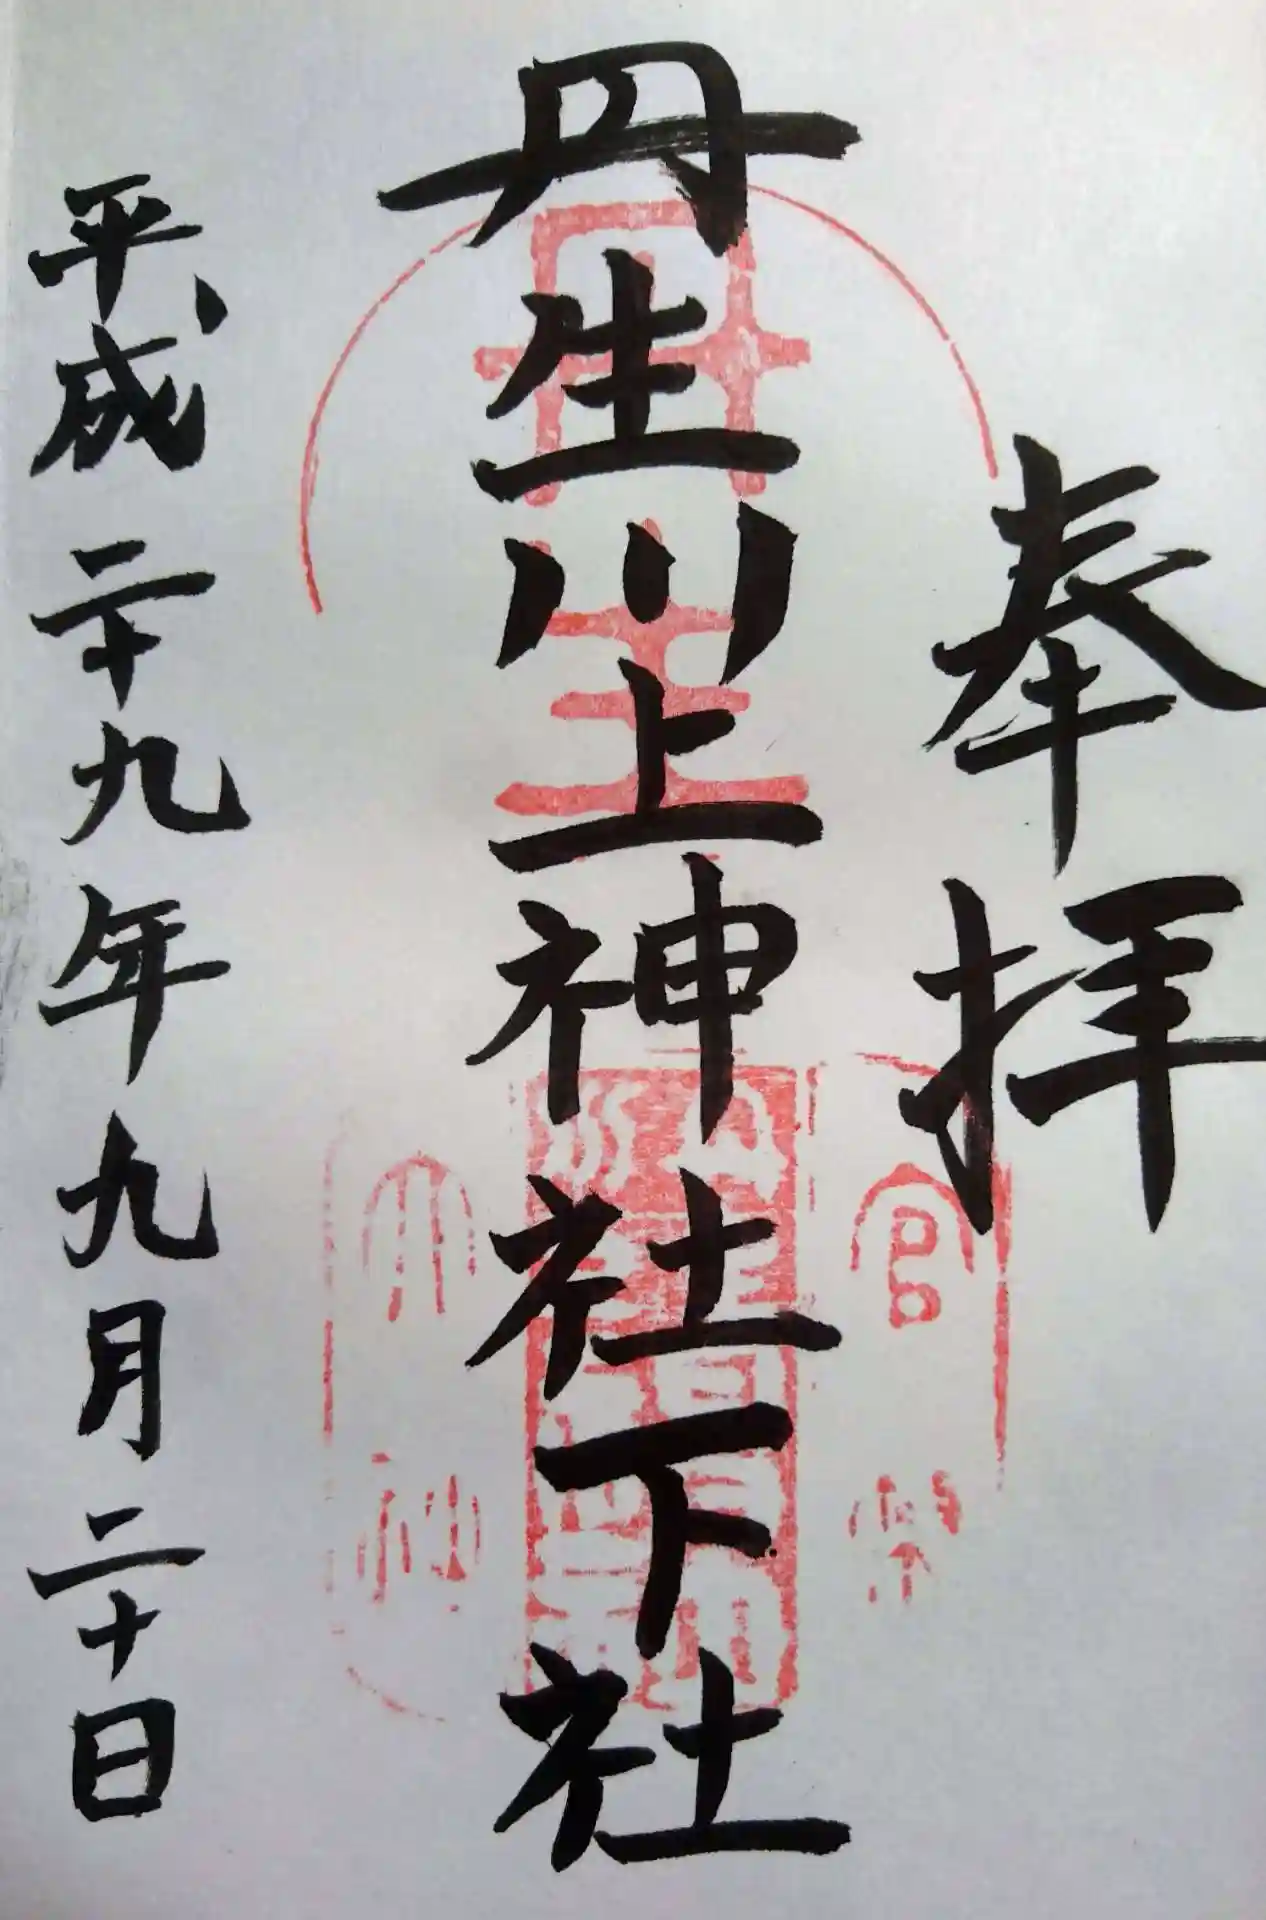 奉拝
丹生川上神社下社
平成二十九年九月二十日